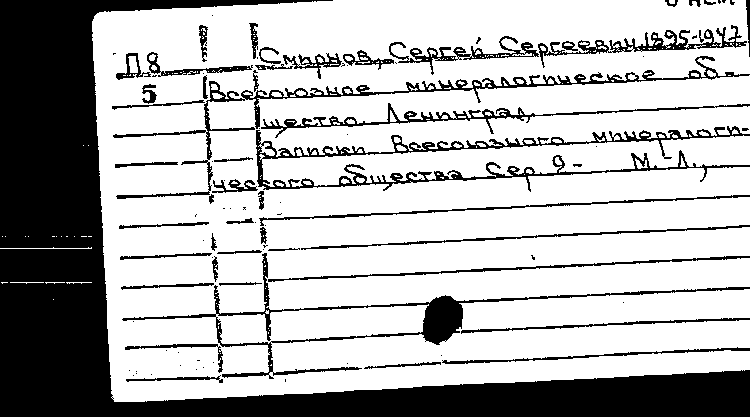 о нем
П8 Смирнов, Сергей Сергеевич 1895-1947
5 Всесоюзное минералогическое об-
щество. Ленинград.
Записки Всесоюзного минералоги-
ческого общества. Сер. 2- М.-Л.,